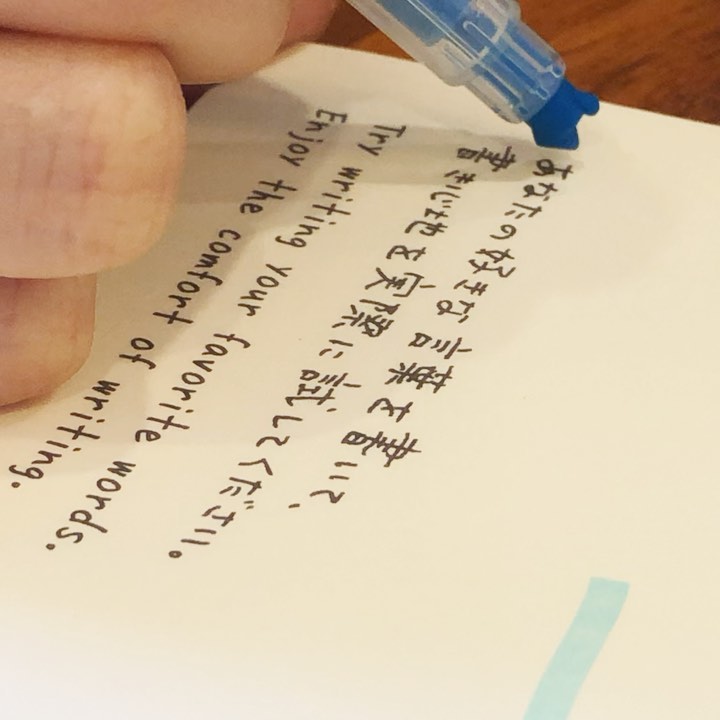 あなたの好きな言葉を書いて、
書き心地を実際に試してください。
Try writing your favorite words.
Enjoy the comfort of writing.